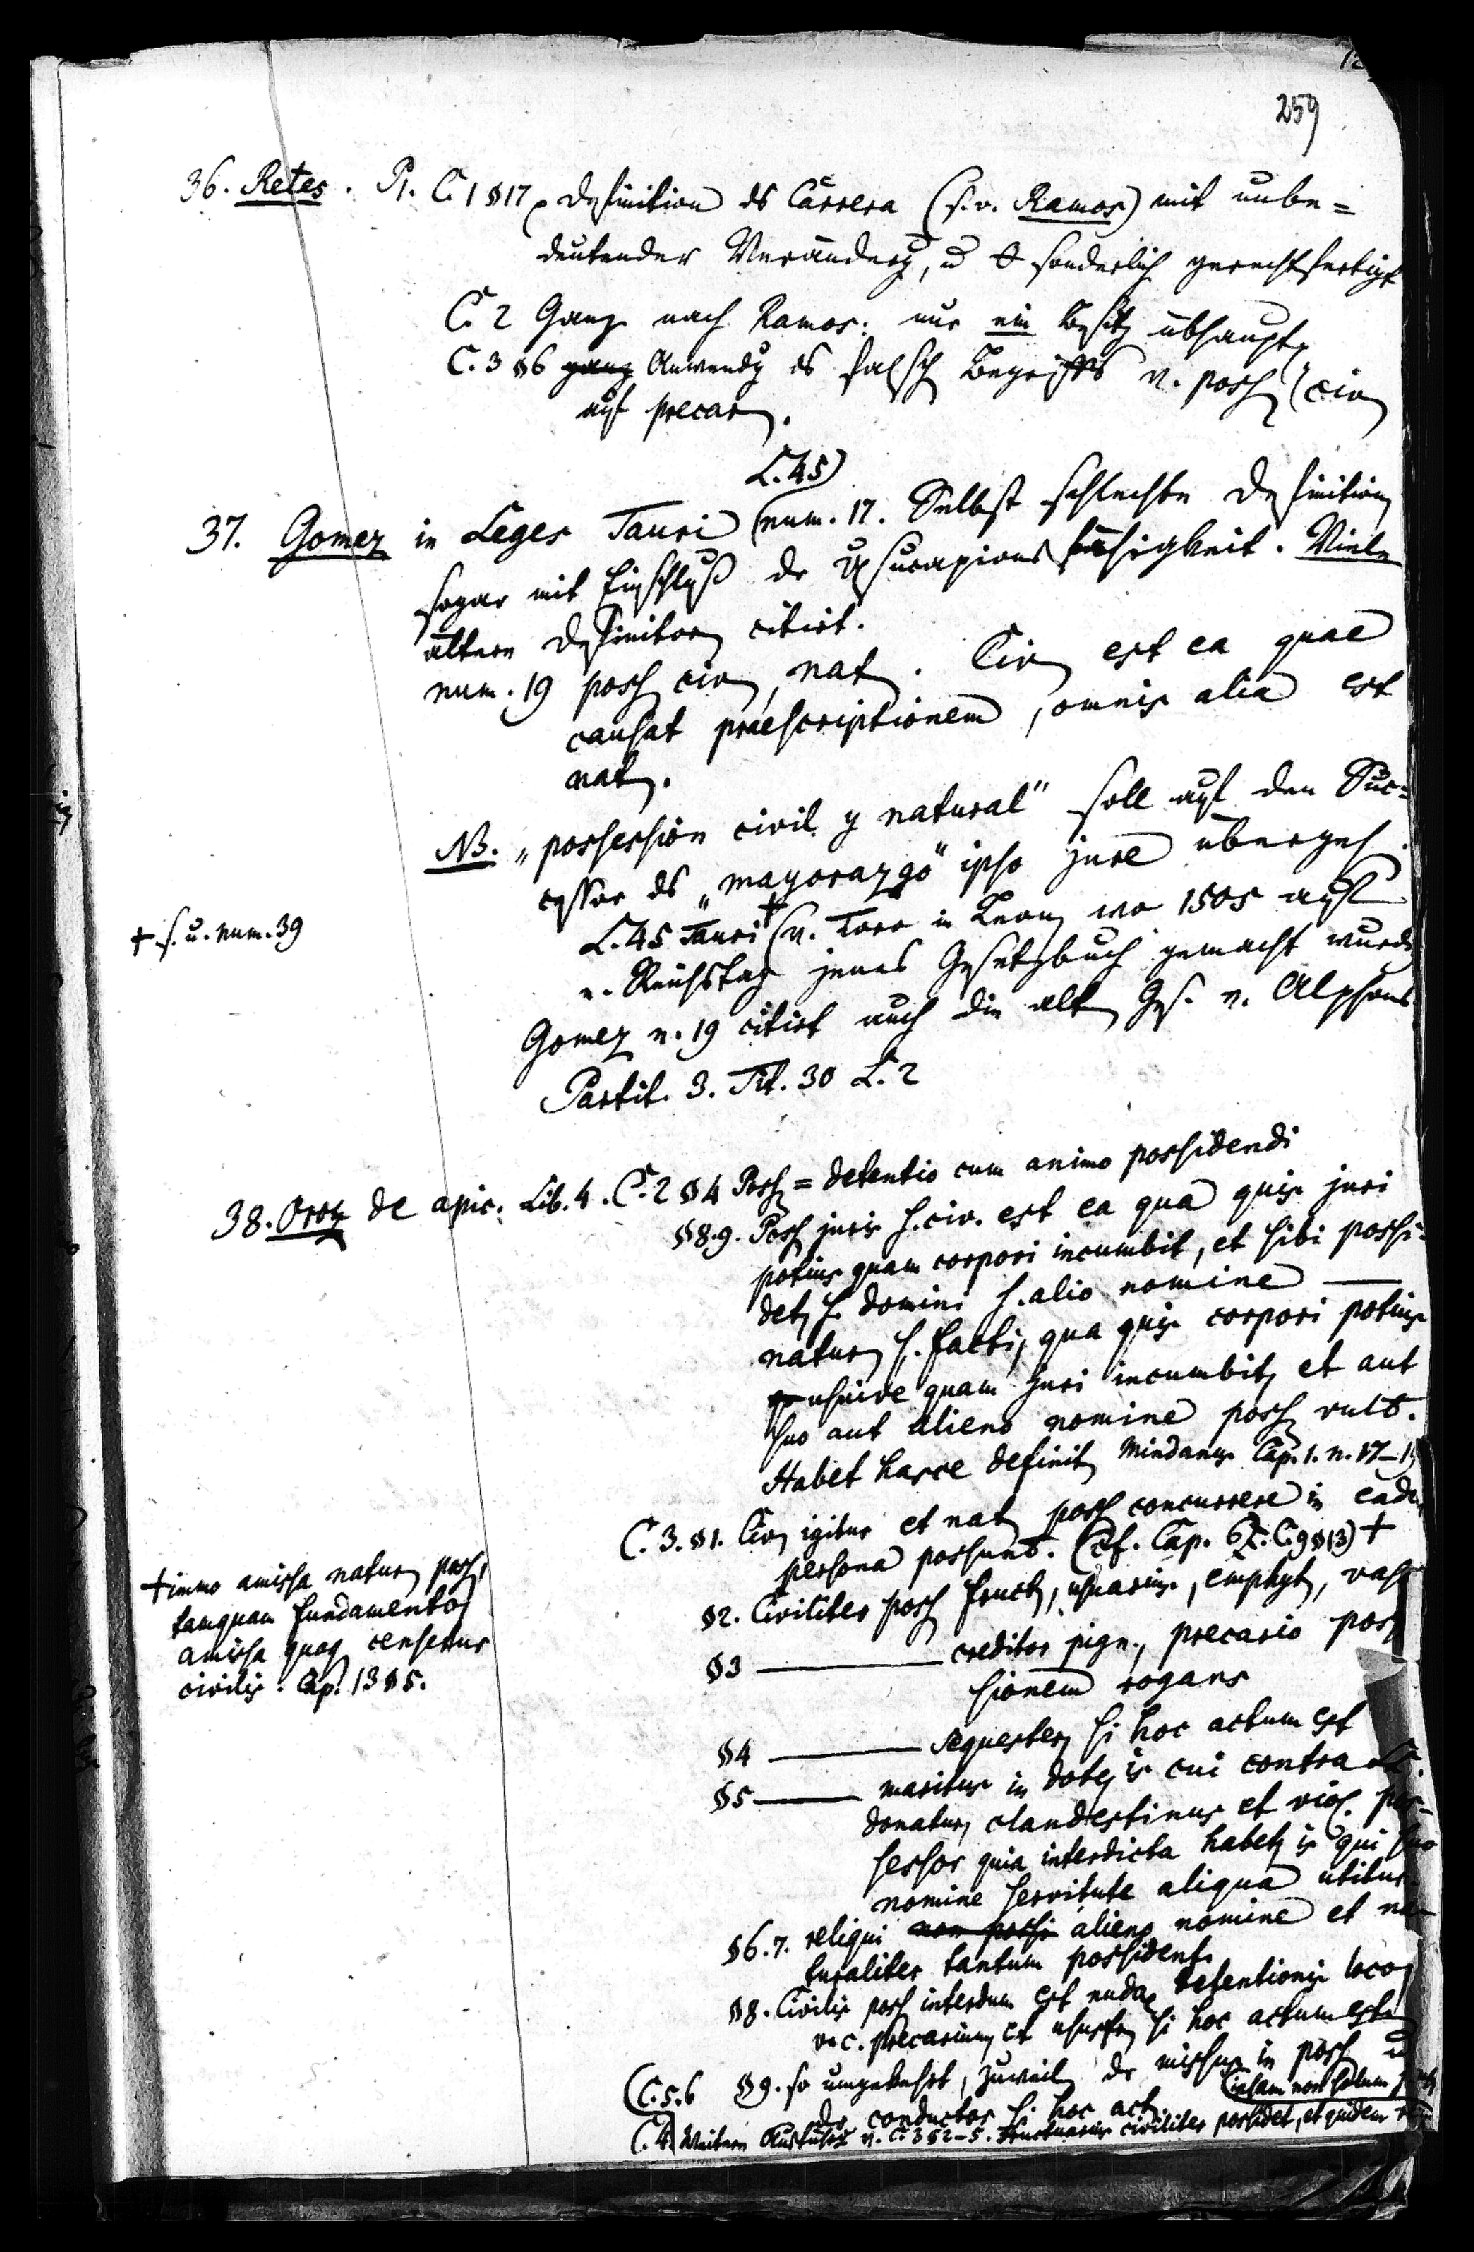 259
36. Retes. P. 1. C. 1 §17, Definition ds Carrera (s. v. Ramos) mit unbe=
deutender Veränderg, u sonderlich gerechtfertigt
C. 2 Ganz nach Ramos: nur ein Besitz übhaupt
C. 3 §6 ganz Anwendg ds falsch Begriffs v. poss civ
auf precar.
L. 45)
37. Gomez in Leges Tauri (num. 17. Selbst schlechte Definition
sogar mit Einschluß dr Usucapionsfähigkeit. Viele
ältere Definitor citirt.
num. 19 poss civ, nat. Civ est ea quae
causat praescriptionem, omnis alia est
nat.
NB. „possession civil y natural" soll auf den Suc=
cessor ds „mayorazgo" ipso jure übergeh.
L. 45 Tauri + (v. Toro in Leon, wo 1505 auf
e. Reichstag jenes Gesetzbuch gemacht wurde
+ s. u. num. 39
Gomez n. 19 citirt auch die alt Ges. v. Alphons
Partit. 3. Tit. 30 L. 2
38. Oroz de apic. Lib. 4. C. 2 §4 Poss = detentio cum animo possidendi
§8.9. Poss juris s. civ. est ea qua quis juri
potius quam corpori incumbit, et sibi possi=
det, s. domini s. alio nomine —
natur s. facti, qua quis corpori potius
usuive quam juri incumbit, et aut
suo aut alieno nomine poss vult.
Habet hasce definit Mindanus Cap. 1. n. 17–
C. 3. §1. Civ igitur et nat poss concurrere in eadem
persona possunt. (cf. Cap. 6. C. 9 §13) +
+ immo amissa natur poss,
tamquam fundamento
amissa quoq censetur
civilis. Cap. 13 §5.
§2. Civiliter poss fruct, usuarius, emphyt, vas
§3 — creditor pign., precario pos
sionem rogans
§4 — sequester, si hoc actum est
§5 — maritus in dote, is cui contra
donatur, clandestinus et viol. pos=
sessor quia interdicta habet, is qui suo
nomine servitute aliqua utitur.
§6.7. reliqui non possi alieno nomine et na
turaliter tantum possident.
§8. Civilis poss interdum est nudae detentionis loco
v. c. precarium et ususfr, si hoc actum est
(C. 5.6 §9. so umgekehrt, zuweil dr missus in poss u
dr conductor s. hoc act.
C. 4. Weitere Ausführg v. C. 3 §2–5. Fructuarius civiliter possidet, et quidem